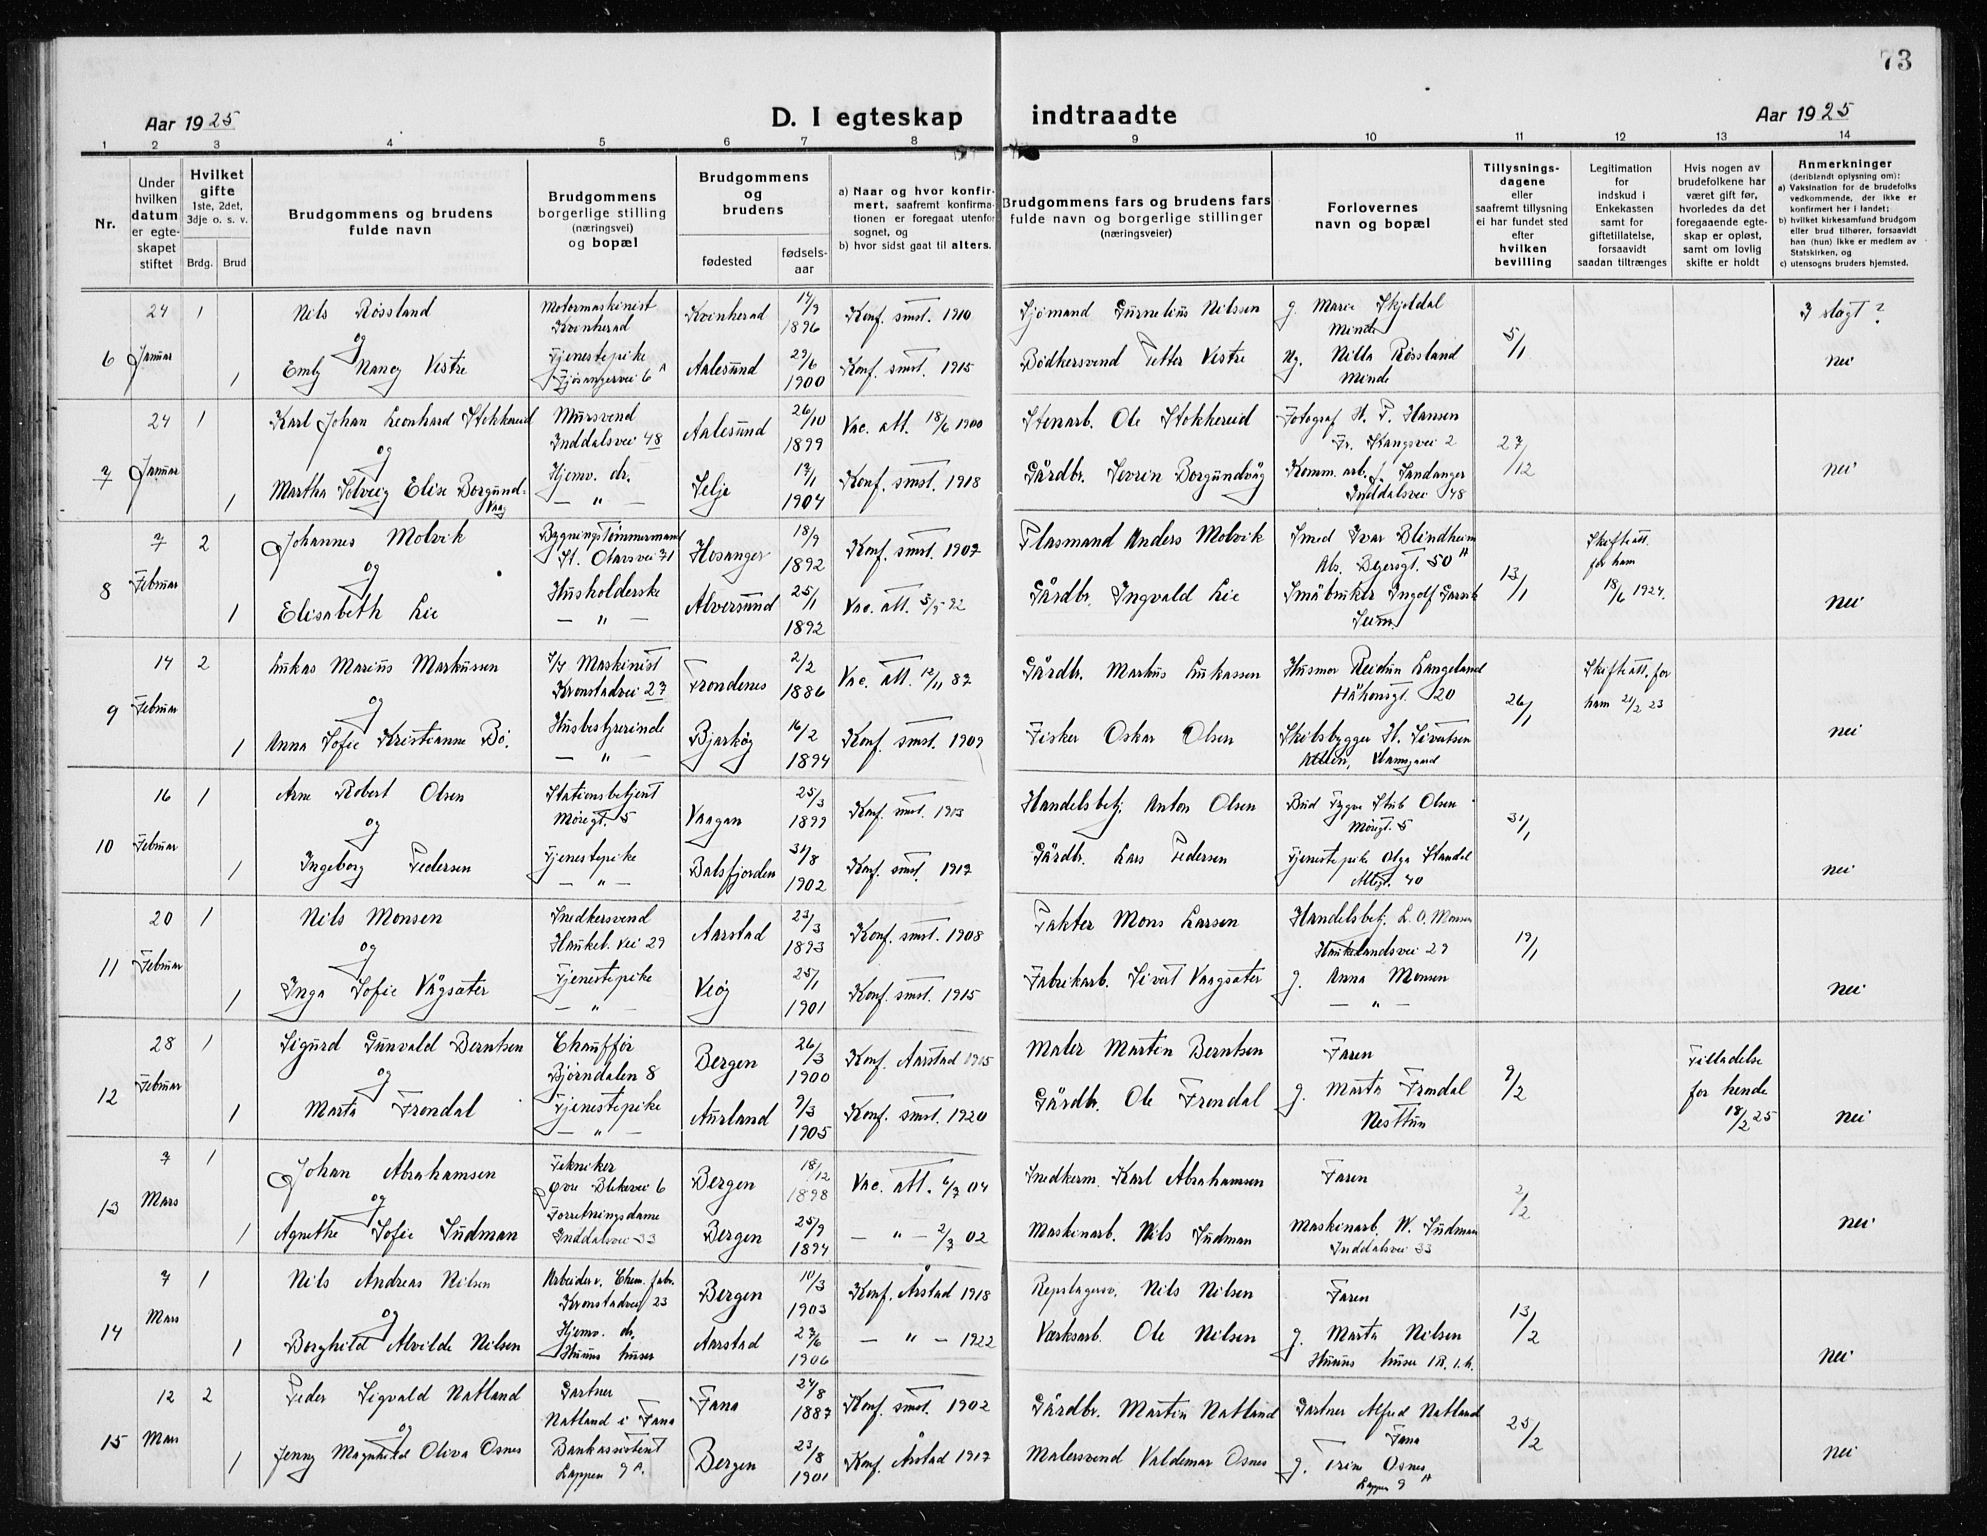 73
Aar 1925
D. I egteskap indtraadte
Aar 1925
1 2 3 4 5 6 7 8 9 10 11 12 13 14
Nr.
Under hvilken datum er egteskapet stiftet
Hvilket gifte 1ste, 2det, 3dje o. s. v.
Brdg. Brud
Brudgommens og brudens fulde navn
Brudgommens borgerlige stilling (næringsvei) og bopæl
Brudgommens og brudens
fødested
fødselsaar
a) Naar og hvor konfirmert, saafremt konfirmationen er foregaat utenfor sognet, og
b) hvor sidst gaat til alters.
Brudgommens fars og brudens fars fulde navn og borgerlige stillinger (næringsveier)
Forlovernes navn og bopæl
Tillysningsdagene eller saafremt tillysning ei har fundet sted efter hvilken bevilling
Legitimation for indskud i Enkekassen samt for giftetillatelse, forsaavidt saadan tiltrænges
Hvis nogen av brudefolkene har været gift før, hvorledes da det foregaaende egteskap er opløst, samt om lovlig skifte er holdt
Anmerkninger (deriblendt oplysning om):
a) Vaksination for de brudefolks vedkommende, der ikke er konfirmert her i landet;
b) hvilket kirkesamfund brudgom eller brud tilhører, forsaavidt han (hun) ikke er medlem av Statskirken, og
c) utensogns bruders hjemsted.
6 24 Januar 1 Nils Røssland Motormaskinist Kvinherad Kvinherad 14/9 1896 Konf. smst. 1910 Sjømand Gurnelius Nilssen g. Marie Skjeldal Minde 5/1 I slagt?
og
1 Emly Nancy Vestre Tjenestepike Fjøsangervei 6 A Aalesund 29/6 1900 Konf. smst. 1915 Bødkersvend Petter Vestre Ug. Nilla Røssland Minde nei
7 24 Januar 1 Karl Johan Leonhard Stokkereid Mursvend Inddalsvei 48 Aalesund 26/10 1899 Vac. att. 18/6 1900 Stenarb. Ole Stokkereid Fotograf H. P. Hansen Fr. Stangsvei 2 27/12
og
1 Martha Solveig Elise Borgundvaag Hjemv. dr. — " — Selje 17/1 1904 Konf. smst. 1918 Gårdbr. Severin Borgundvåg Komm. arb. J. Sandanger Inddalsvei 48 nei
8 7 Februar 2 Johannes Molvik Bygningstømmermand St. Olavsvei 71 Hosanger 18/9 1892 Konf. smst. 1907 Plasmand Anders Molvik Smed Ivar Blindheim Abs. Beyersgt. 50 A 13/1 Skifteatt. for ham 18/6 1924.
og
1 Elisabeth Lie Husholderske — " — Alversund 25/1 1892 Vac. att. 5/9 92 Gårdbr. Ingvald Lie Småbruker Ingolf Garvik Seim. nei
9 14 Februar 2 Lukas Marius Markussen Maskinist Kronstadvei 27 Trondenes 2/2 1886 Vac. att. 12/11 87 Gårdbr. Markus Lukassen Husmor Reidun Langeland Håkonsgt. 20 26/1 Skifteatt. for ham 21/2 23
og
1 Anna Sofie Kristianne Bö. Husbestyrerinde — " — Bjarkøy 16/2 1894 Konf. smst. 1909 Fisker Oskar Olsen Skibsbygger H. Sivertsen nei
10 16 Februar 1 Arne Robert Olsen Stationsbetjent Møregt. 5 Vaagan 25/3 1899 Konf. smst. 1913 Handelsbetj. Anton Olsen Bud Trygve Stub Olsen Møregt. 5 31/1
og
1 Ingeborg Pedersen Tjenestepike — " — Balsfjorden 31/8 1902 Konf. smst. 1917 Gårdbr. Lars Pedersen Tjenestepike Olga Standal Allegt. 40 nei
11 20 Februar 1 Nils Monsen Snedkersvend Haukel. vei 29 Aarstad 23/3 1893 Konf. smst. 1908 Fakter Mons Larsen Handelsbetj. L. O. Monsen Haukelandsvei 29 19/1
og
1 Inga Sofie Vågsæter Tjenestepike — " — Veøy 25/1 1901 Konf. smst. 1915 Fabrikarb. Sivert Vaagsæter g. Anna Monsen — " — nei
12 28 Februar 1 Sigurd Gunvald Berntsen Chauffør Bjørndalen 8 Bergen 26/3 1900 Konf. Aarstad 1915 Maler Martin Berntsen Faren 9/2 Tilladelse for hende 18/2 25
og
1 Marta Frondal Tjenestepike — " — Aurland 9/3 1905 Konf. smst. 1920 Gårdbr. Ole Frondal g. Marta Frondal Nesttun nei
13 7 Mars 1 Johan Abrahamsen Tekniker Øvre Blekevei 6 Bergen 18/12 1898 Vac. att. 6/7 04 Snedkerm. Karl Abrahamsen Faren 2/2
og
1 Agnethe Sofie Sudman Forretningsdame Inddalsvei 33 Bergen 25/9 1894 — " — 2/7 02 Maskinarb. Nils Sudman Maskinarb. W. Sudman Inddalsvei 33 nei
14 7 Mars 1 Nils Andreas Nilsen Arbeider v. Chem. fabr. Kronstadvei 23 Bergen 10/3 1903 Konf. Årstad 1918 Repslagersv. Nils Nilsen Faren 13/2
og
1 Borghild Alvilde Nilsen Hjemv. dr. Huuns huser Aarstad 27/6 1906 — " — 1922 Værksarb. Ole Nilsen g. Marta Nilsen Huuns huser 1R. 1. h. nei
15 12 Mars 2 Peder Sigvald Natland Gartner Natland i Fana Fana 24/8 1887 Konf. smst. 1902 Gårdbr. Martin Natland Gartner Alfred Natland Fana 25/2
og
1 Jenny Magnhild Oliva Osnes Bankassistent Lappen 9 A. Bergen 23/8 1901 Konf. Årstad 1917 Malersvend Valdemar Osnes g. Trine Osnes Lappen 9 A nei